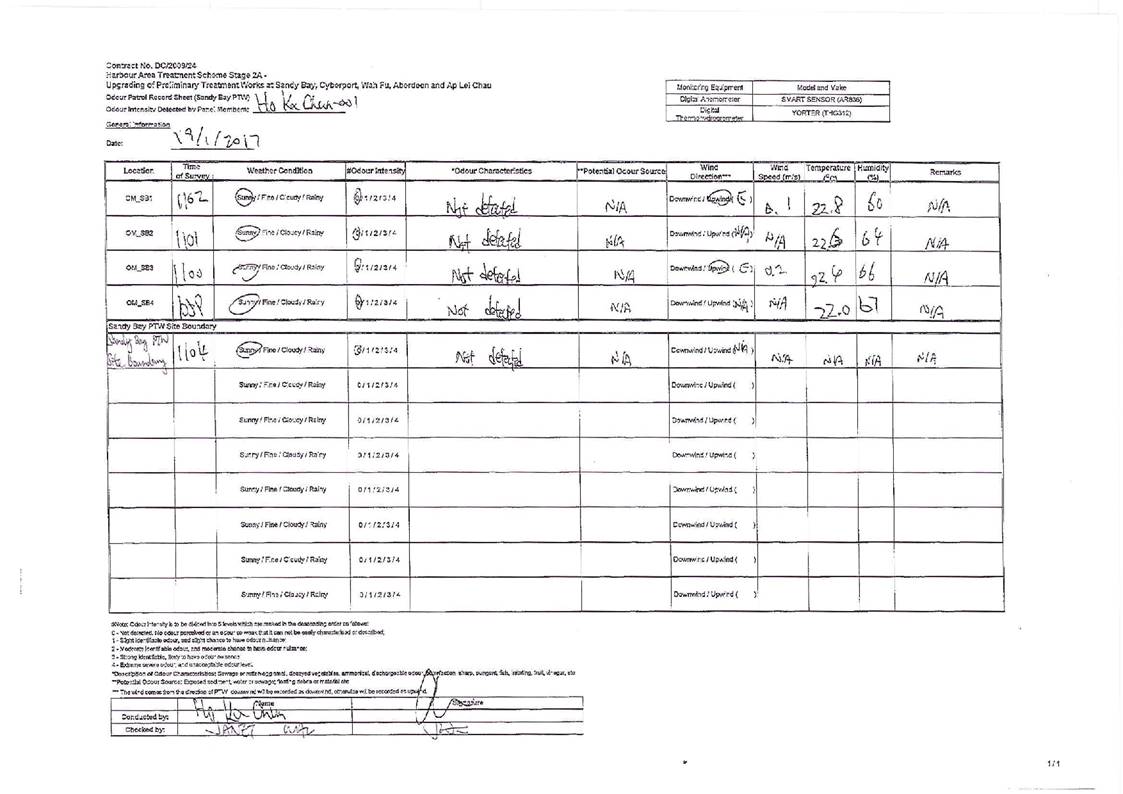 Contract No. DC/2009/24
Harbour Area Treatment Scheme Stage 2A -
Upgrading of Preliminary Treatment Works at Sandy Bay, Cyberport, Wah Fu, Aberdeen and Ap Lei Chau
Odour Patrol Record Sheet (Sandy Bay PTW)
Odour Intensity Detected by Panel Members: Ho Ka Chun-001
General Information
Date: 19/1/2017
Monitoring Equipment Model and Make
Digital Anemometer SMART SENSOR (AR836)
Digital Thermohydrometer YORTER (THG312)
Location Time of Survey Weather Condition #Odour Intensity *Odour Characteristics **Potential Odour Source Wind Direction*** Wind Speed (m/s) Temperature (°C) Humidity (%) Remarks
OM_SB1 Sunny / Fine / Cloudy / Rainy 0/1/2/3/4 Not detected N/A Downwind / Upwind ( E ) 0.1 22.8 60 N/A
OM_SB2 1101 Sunny / Fine / Cloudy / Rainy 0/1/2/3/4 Not detected N/A Downwind / Upwind (N/A) N/A 64 N/A
OM_SB3 1100 Sunny / Fine / Cloudy / Rainy 0/1/2/3/4 Not detected N/A Downwind / Upwind ( E ) 0.2 22.4 66 N/A
OM_SB4 Sunny / Fine / Cloudy / Rainy 0/1/2/3/4 Not detected N/A Downwind / Upwind (N/A) N/A 22.0 67 N/A
Sandy Bay PTW Site Boundary
Sandy Bay PTW Site Boundary 1104 Sunny / Fine / Cloudy / Rainy 0/1/2/3/4 Not detected N/A Downwind / Upwind (N/A) N/A N/A N/A N/A
Sunny / Fine / Cloudy / Rainy 0/1/2/3/4 Downwind / Upwind ( )
Sunny / Fine / Cloudy / Rainy 0/1/2/3/4 Downwind / Upwind ( )
Sunny / Fine / Cloudy / Rainy 0/1/2/3/4 Downwind / Upwind ( )
Sunny / Fine / Cloudy / Rainy 0/1/2/3/4 Downwind / Upwind ( )
Sunny / Fine / Cloudy / Rainy 0/1/2/3/4 Downwind / Upwind ( )
Sunny / Fine / Cloudy / Rainy 0/1/2/3/4 Downwind / Upwind ( )
Sunny / Fine / Cloudy / Rainy 0/1/2/3/4 Downwind / Upwind ( )
#Note: Odour Intensity is to be divided into 5 levels which are ranked in the descending order as follows:
0 - Not detected. No odour perceived or an odour so weak that it can not be easily characterised or described;
1 - Slight identifiable odour, and slight chance to have odour nuisance;
2 - Moderate identifiable odour, and moderate chance to have odour nuisance;
3 - Strong identifiable, likely to have odour nuisance
4 - Extreme severe odour, and unacceptable odour level.
*Description of Odour Characteristics: Sewage or rotten-egg smell, decayed vegetables, ammonical, dischargeable odour, putrefaction, sharp, pungent, fish, irritating, fruit, vinegar, etc
**Potential Odour Source: Exposed sediment, water or sewage; floating debris or material etc
*** The wind comes from the direction of PTW downwind will be recorded as downwind, otherwise will be recorded as upwind.
Name Signature
Conducted by: Ho Ka Chun
Checked by:
1/1